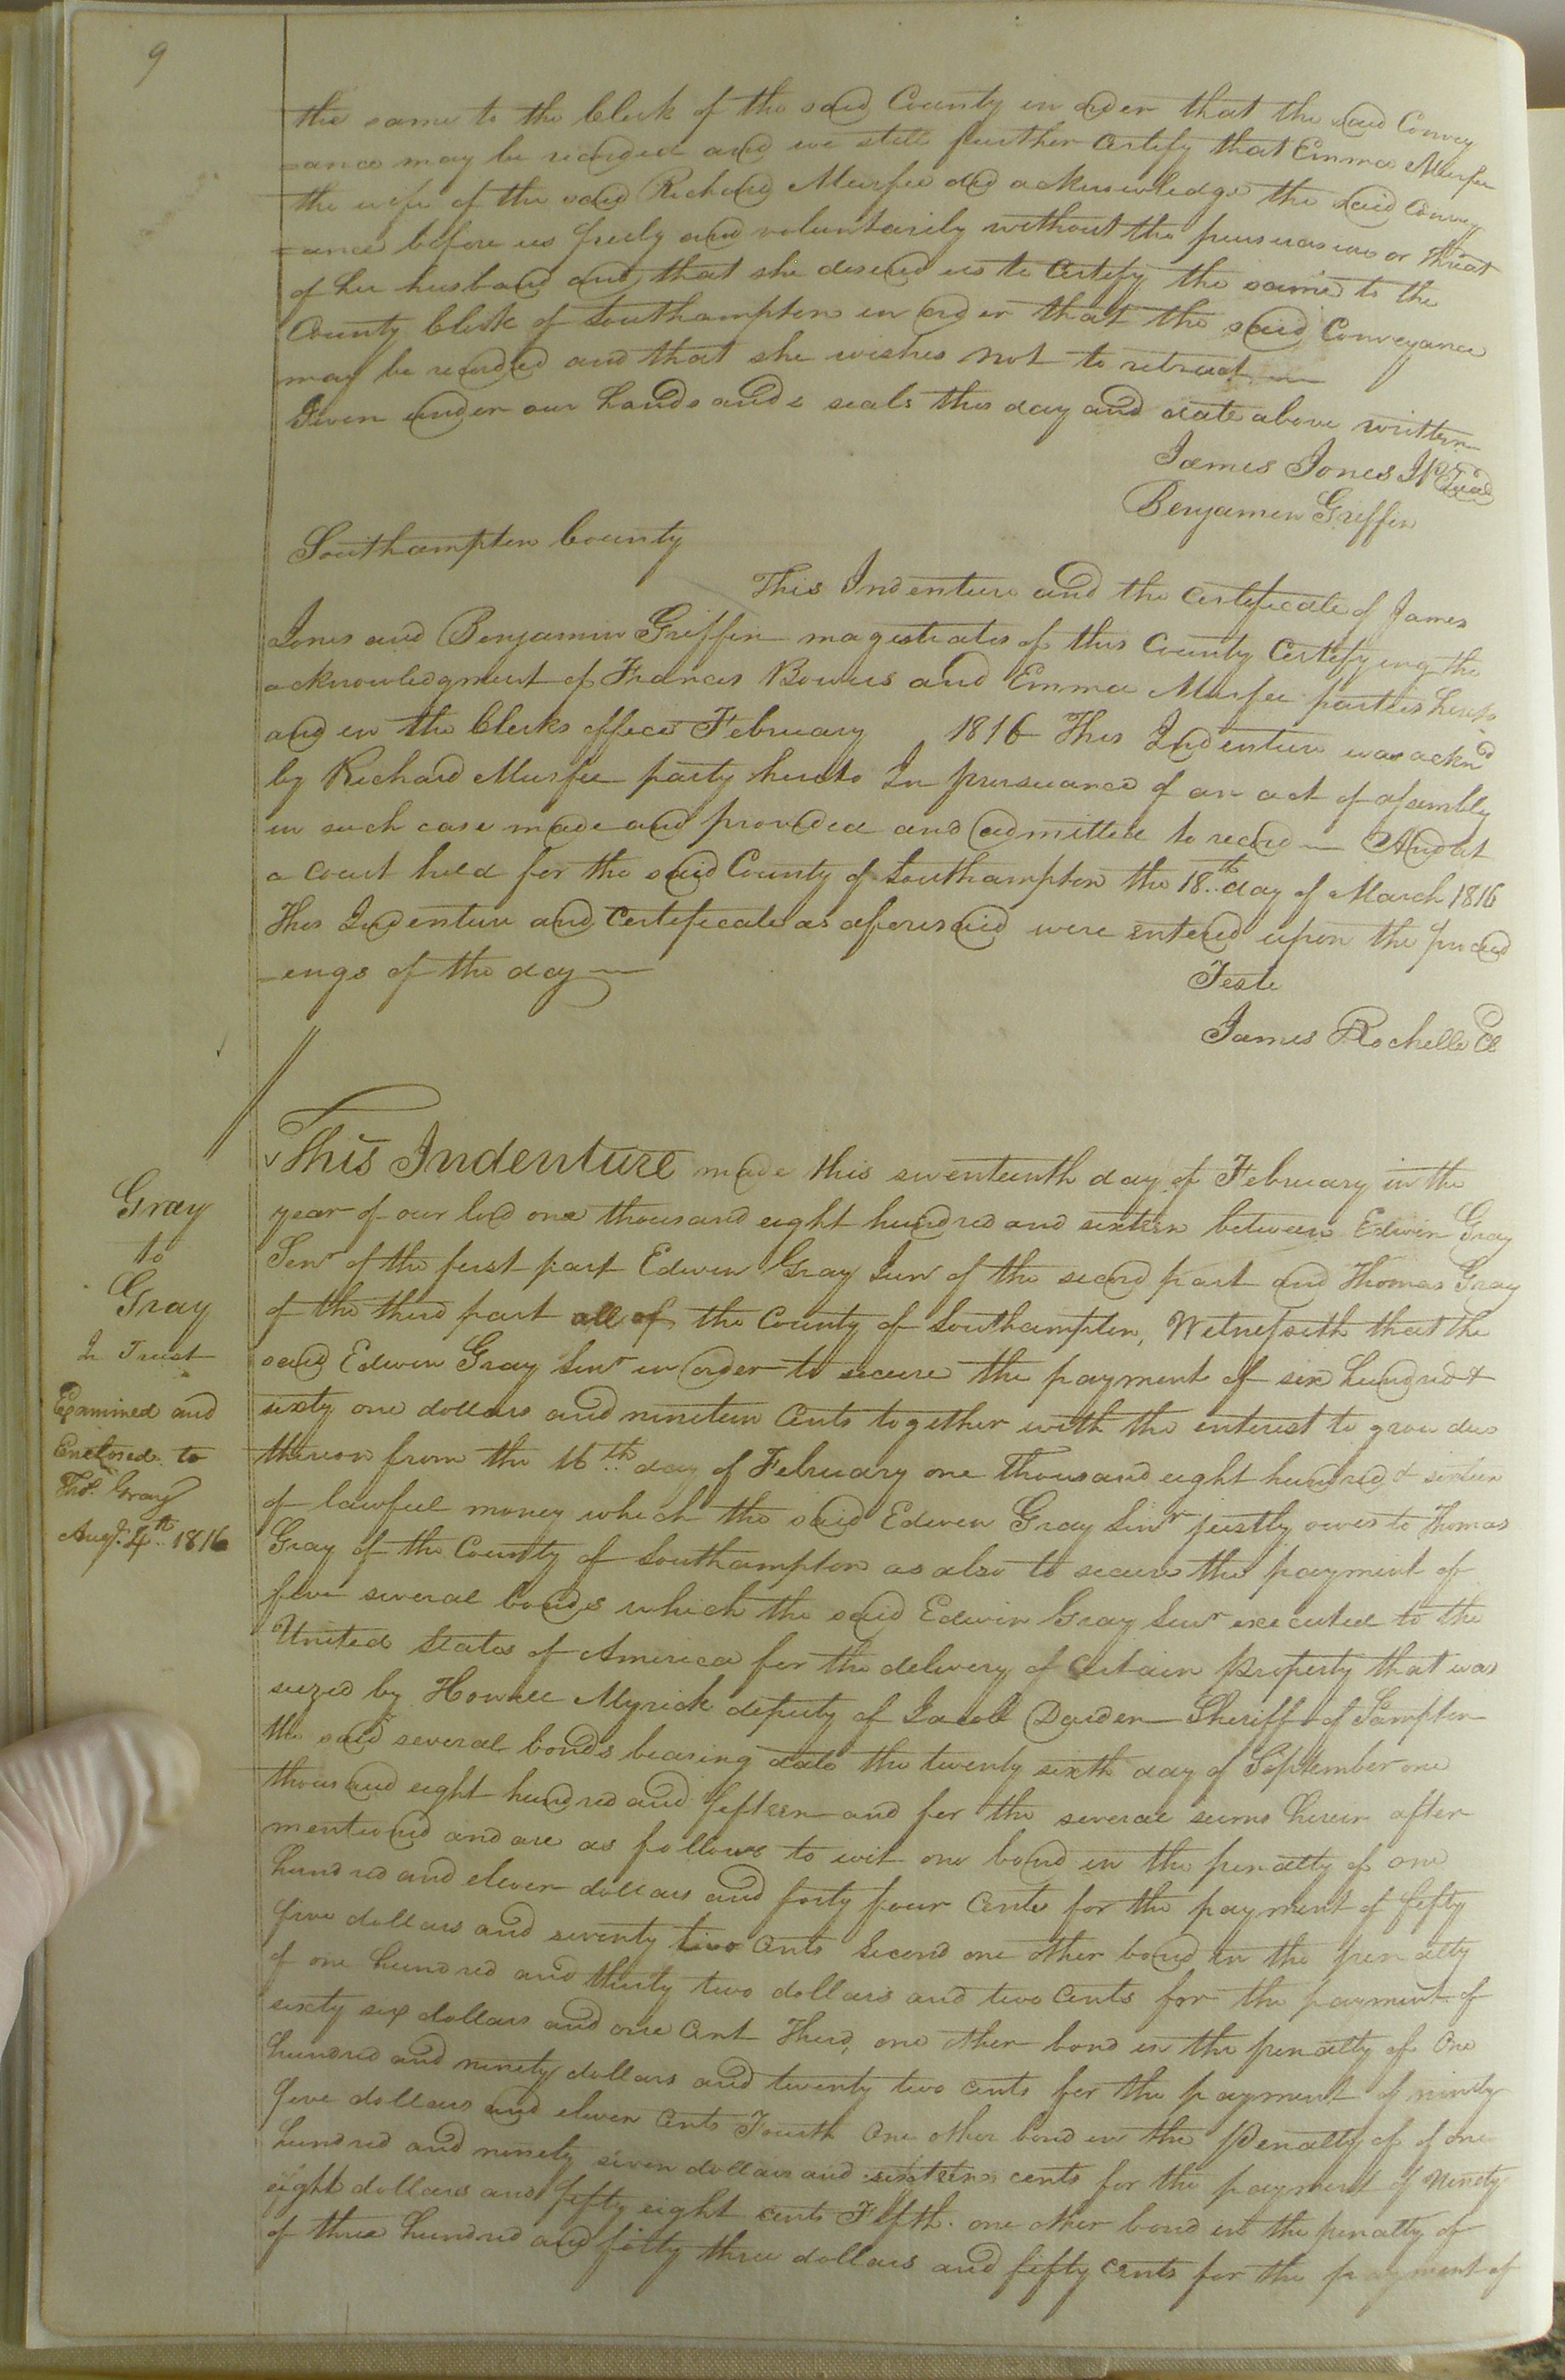 9
the same to the Clerk of the said County in order that the said Convey
-ance may be recorded and we still further Certify that Emma Murfee
the wife of the said Richard Murfee did acknowledge the said Convey
-ance before us freely and voluntarily without the persuasions or threat
of her husband and that she desired us to Certify the same to the
County Clerk of Southampton in order that the said Conveyance
may be recorded and that she wishes not to retract
Given under our hands and seals this day and date above written
James Jones
Benjamin Griffin
Southampton County
This Indenture and the Certificate of James
Jones and Benjamin Griffin magistrates of this County Certifying the
acknowledgment of Frances Bowers and Emma Murfee parties hereto
and in the Clerks office February 1816 This Indenture was acknd
by Richard Murfee party hereto In pursuance of an act of assembly
in such case made and provided and admitted to record - And at
a Court held for the said County of Southampton the 18th day of March 1816
This Indenture and Certificate as aforesaid were entered upon the proceed
-ings of the day
Teste
James Rochelle Cl
Gray
to
Gray
In Trust
Examined and
Enclosed to
Tho. Gray
Augt. 4th 1816
This Indenture made this seventeenth day of February in the
year of our lord one thousand eight hundred and sixteen between Edwin Gray
Senr of the first part Edwin Gray Junr of the second part and Thomas Gray
of the third part all of the County of Southampton, Witnesseth that the
said Edwin Gray Senr in order to secure the payment of six hundred &
sixty one dollars and nineteen Cents together with the interest to grow due
thereon from the 16th day of February one thousand eight hundred & sixteen
of lawfull money which the said Edwin Gray Senr justly owes to Thomas
Gray of the County of Southampton as also to secure the payment of
five several bonds which the said Edwin Gray Senr executed to the
United States of America for the delivery of Certain property that was
siezed by Howell Myrick deputy of Jacob Darden Sheriff of Sampton
the said several bonds bearing date the twenty sixth day of September one
thousand eight hundred and fifteen and for the several sums herein after
mentioned and are as follows to wit one bond in the penalty of one
hundred and eleven dollars and forty four Cents for the payment of fifty
five dollars and seventy two Cents Second one other bond in the penalty
of one hundred and thirty two dollars and two Cents for the payment of
sixty six dollars and one Cent Third, one other bond in the penalty of One
hundred and ninety dollars and twenty two cents for the payment of ninety
five dollars and eleven Cents Fourth One other bond in the Penalty of of one
hundred and ninety seven dollars and sixteen cents for the payment of Ninety
eight dollars and fifty eight cents Fifth. one other bond in the penalty of
of three hundred and fifty three dollars and fifty Cents for the payment of